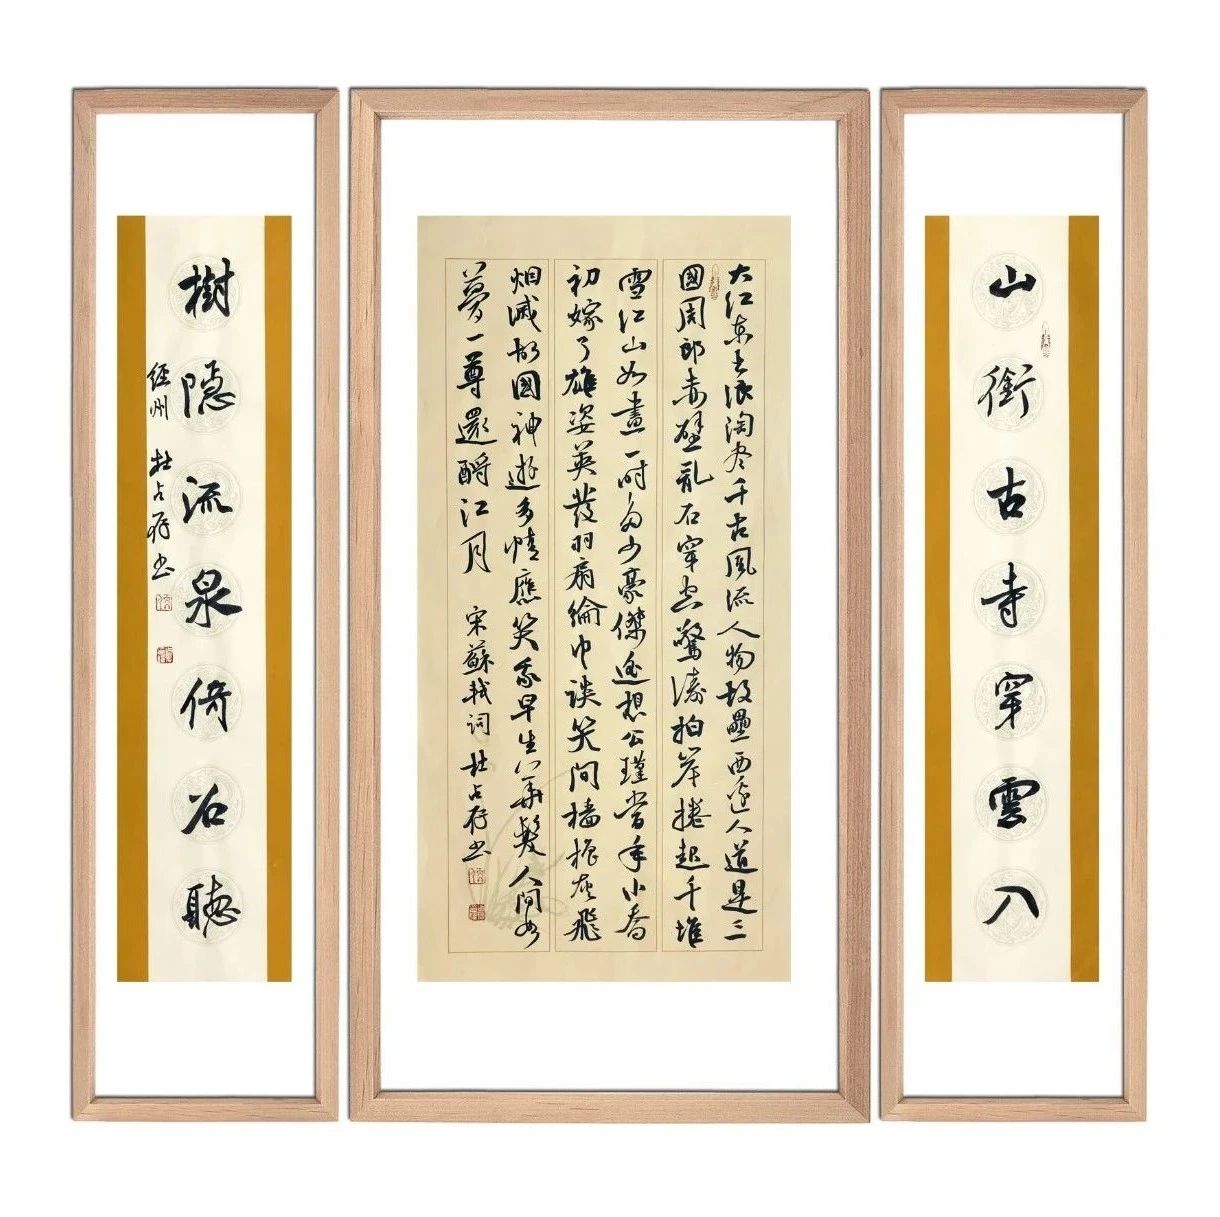 山銜古寺穿雲入
大江東去浪淘尽千古風流人物故壘西邊人道是三
國周郎赤壁亂石穿空驚濤拍岸捲起千堆
雪江山如畫一時多少豪傑遥想公瑾當年小喬
初嫁了雄姿英發羽扇綸巾談笑間檣櫓灰飛
烟滅故國神遊多情應笑我早生華髮人間如
夢一尊還酹江月 宋蘇軾詞 杜占存書
樹隱流泉倚石聽
經州 杜占存書